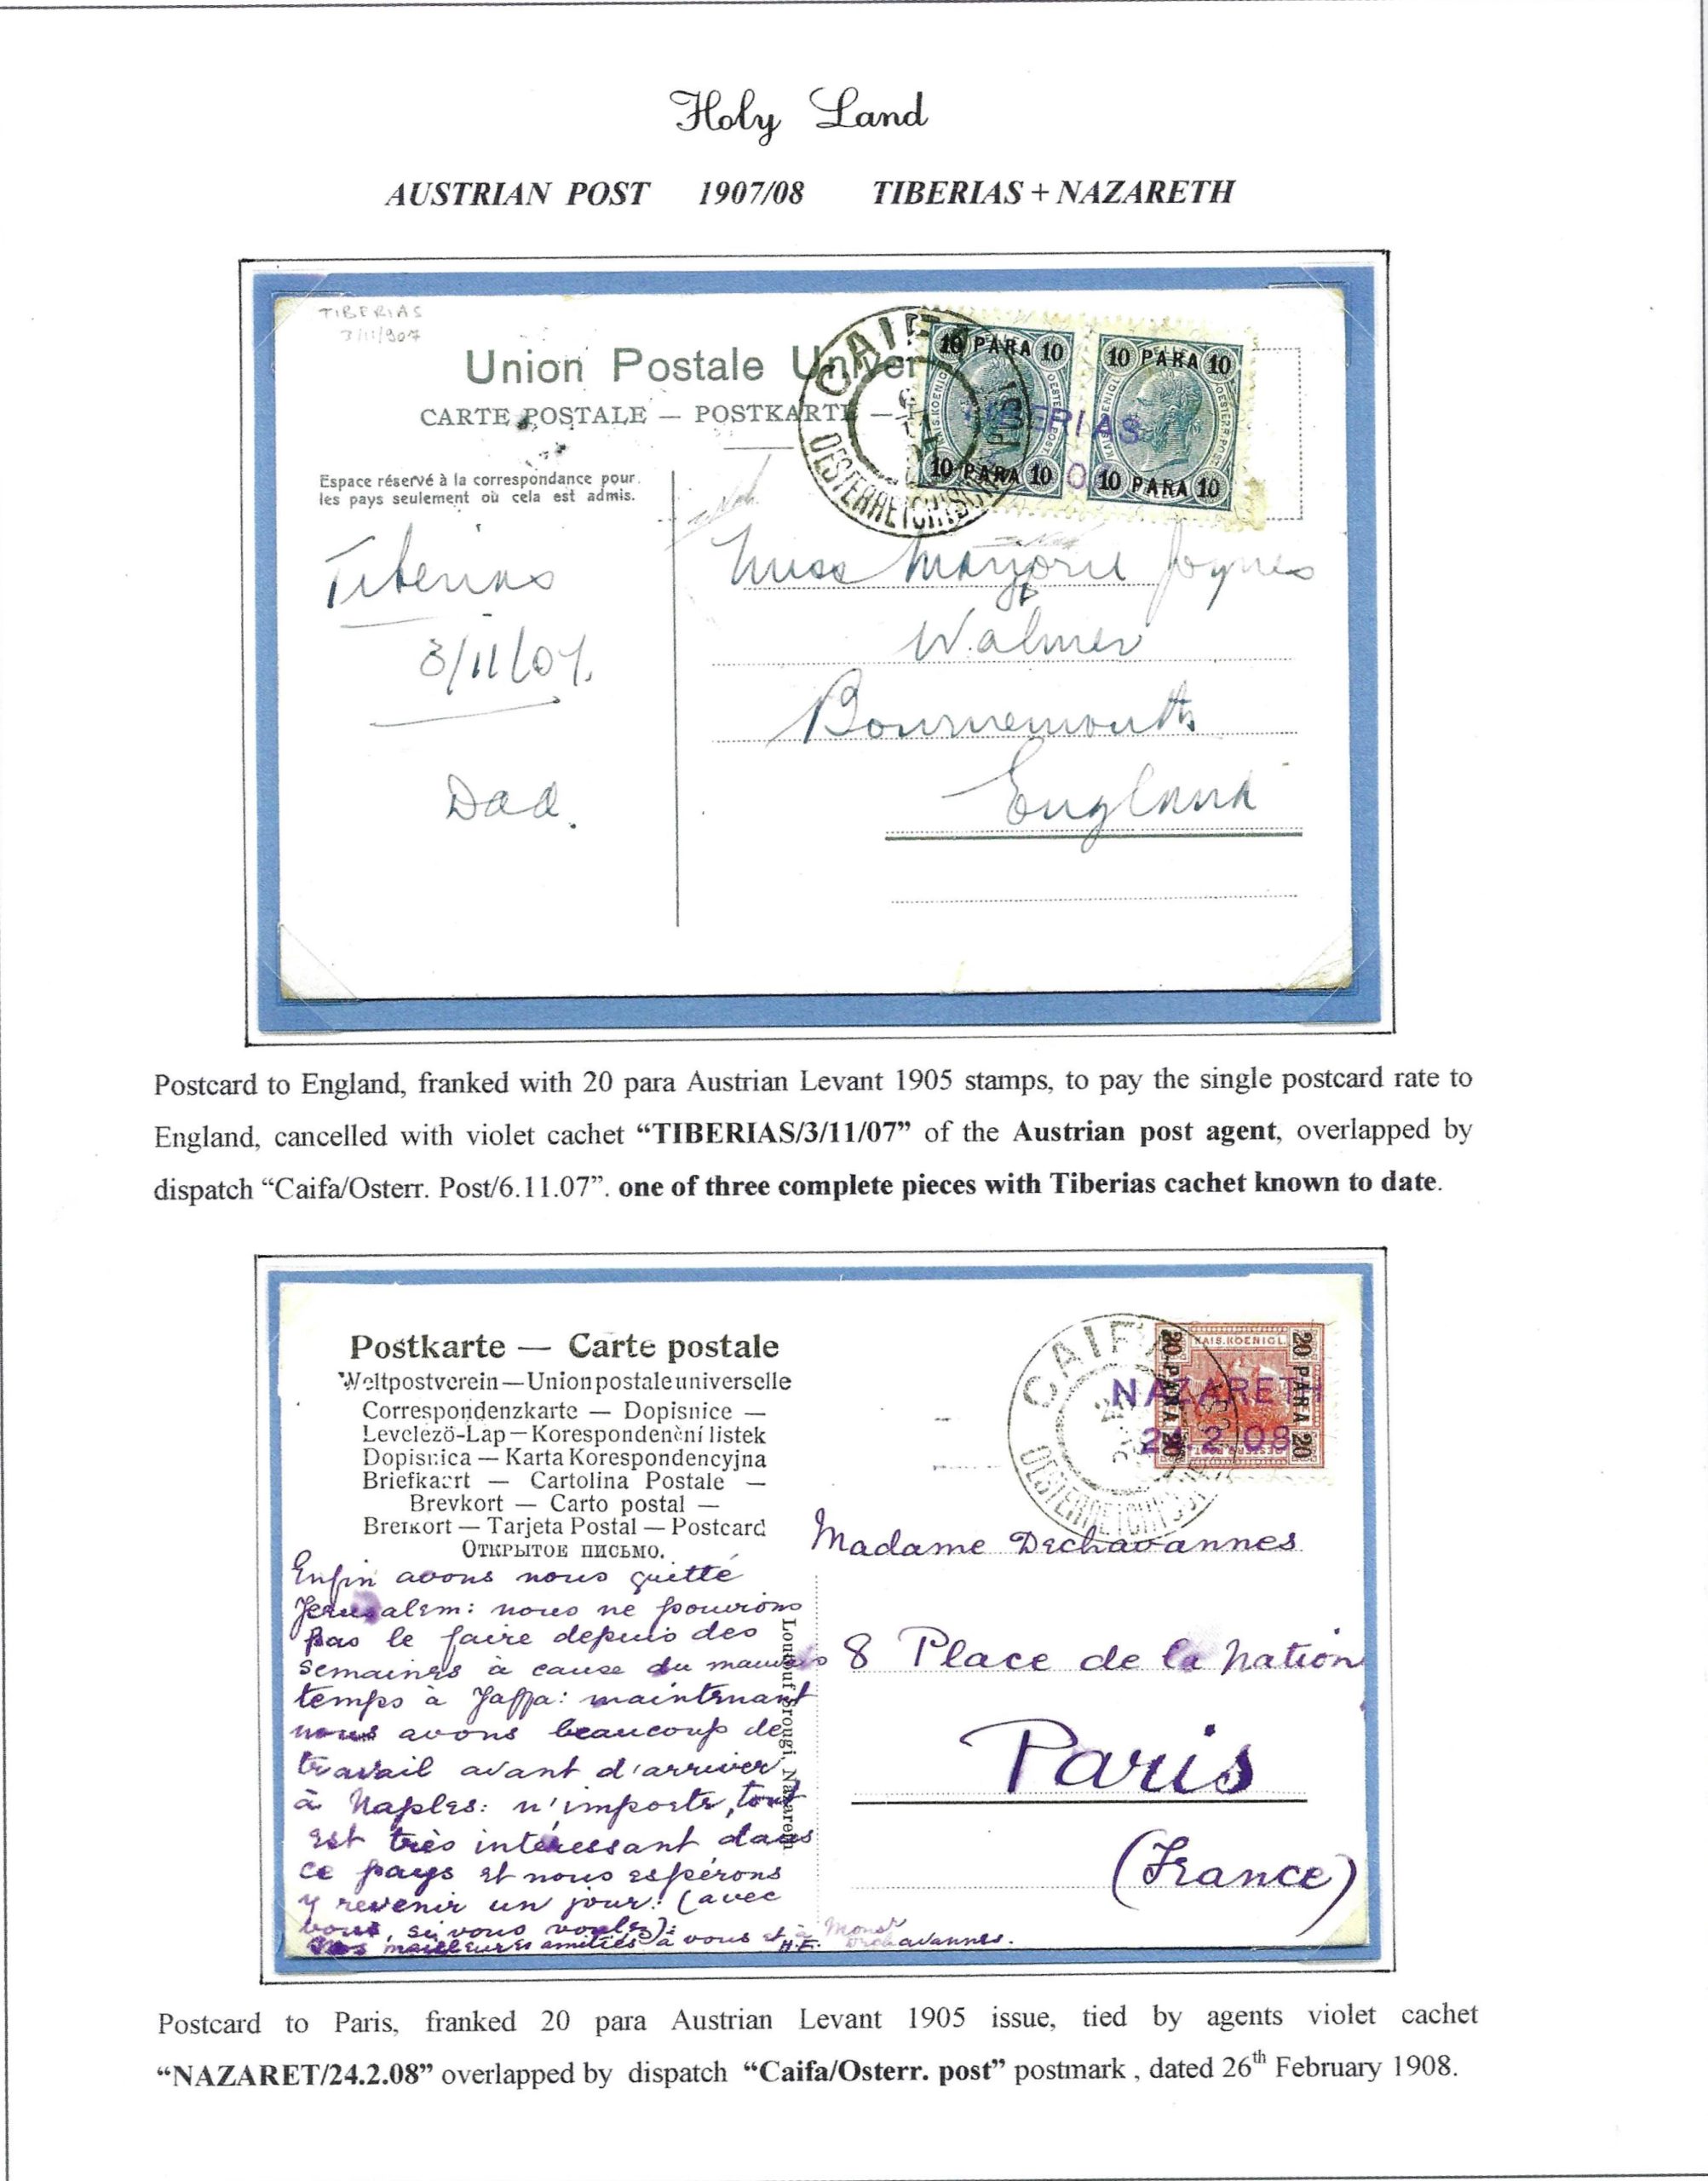 Holy Land
AUSTRIAN POST 1907/08 TIBERIAS + NAZARETH
TIBERIAS
3/11/907
Union Postale Univer
CARTE POSTALE — POSTKARTE —
CAIFA
OESTERREICHISCHE POST
10 PARA 10
10 PARA 10
10 PARA 10
10 PARA 10
TIBERIAS
Espace réservé à la correspondance pour
les pays seulement où cela est admis.
Tiberias
3/11/07.
Dad.
Miss Marjorie Joynes
Walmer
Bournemouth
England
Postcard to England, franked with 20 para Austrian Levant 1905 stamps, to pay the single postcard rate to
England, cancelled with violet cachet “TIBERIAS/3/11/07” of the Austrian post agent, overlapped by
dispatch “Caifa/Osterr. Post/6.11.07”. one of three complete pieces with Tiberias cachet known to date.
Postkarte — Carte postale
Weltpostverein — Union postale universelle
Correspondenzkarte — Dopisnice —
Levelező-Lap — Korespondenční listek
Dopisnica — Karta Korespondencyjna
Briefkaart — Cartolina Postale —
Brevkort — Carto postal —
Brefkort — Tarjeta Postal — Postcard
Открытое письмо.
CAIFA
OESTERREICHISCHE POST
KAIS. KOENIGL.
20 PARA 20
20 PARA 20
NAZARETH
24.2.08
Enfin avons nous quitté
Jerusalem: nous ne pouvions
pas le faire depuis des
semaines à cause du mauvais
temps à Jaffa: maintenant
nous avons beaucoup de
travail avant d'arriver
à Naples: n'importe, tout
est très intéressant dans
ce pays et nous espérons
y revenir un jour! (avec
vous, si vous voulez):
Nos meilleures amitiés à vous et à Monsr Dechavannes.
H.F.
Loutouf Srougi, Nazareth
Madame Dechavannes
8 Place de la Nation
Paris
(France)
Postcard to Paris, franked 20 para Austrian Levant 1905 issue, tied by agents violet cachet
“NAZARET/24.2.08” overlapped by dispatch “Caifa/Osterr. post” postmark , dated 26th February 1908.